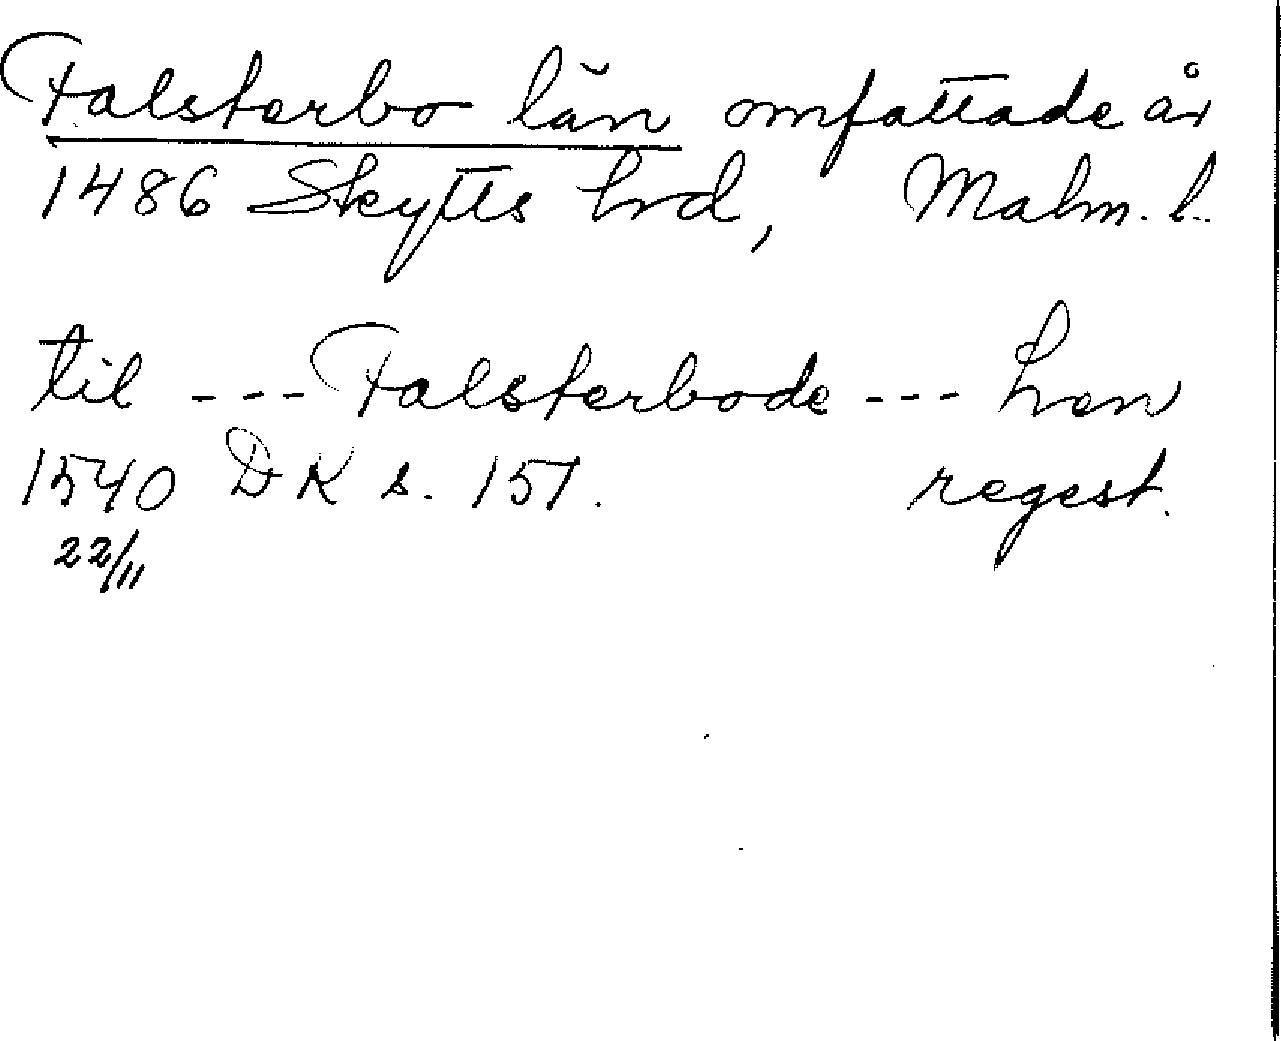 Falsterbo län omfattade år
1486 Skytts hrd, Malm. l.
til --- Falsterbode --- Len
1540 DK s. 157. regest.
22/11